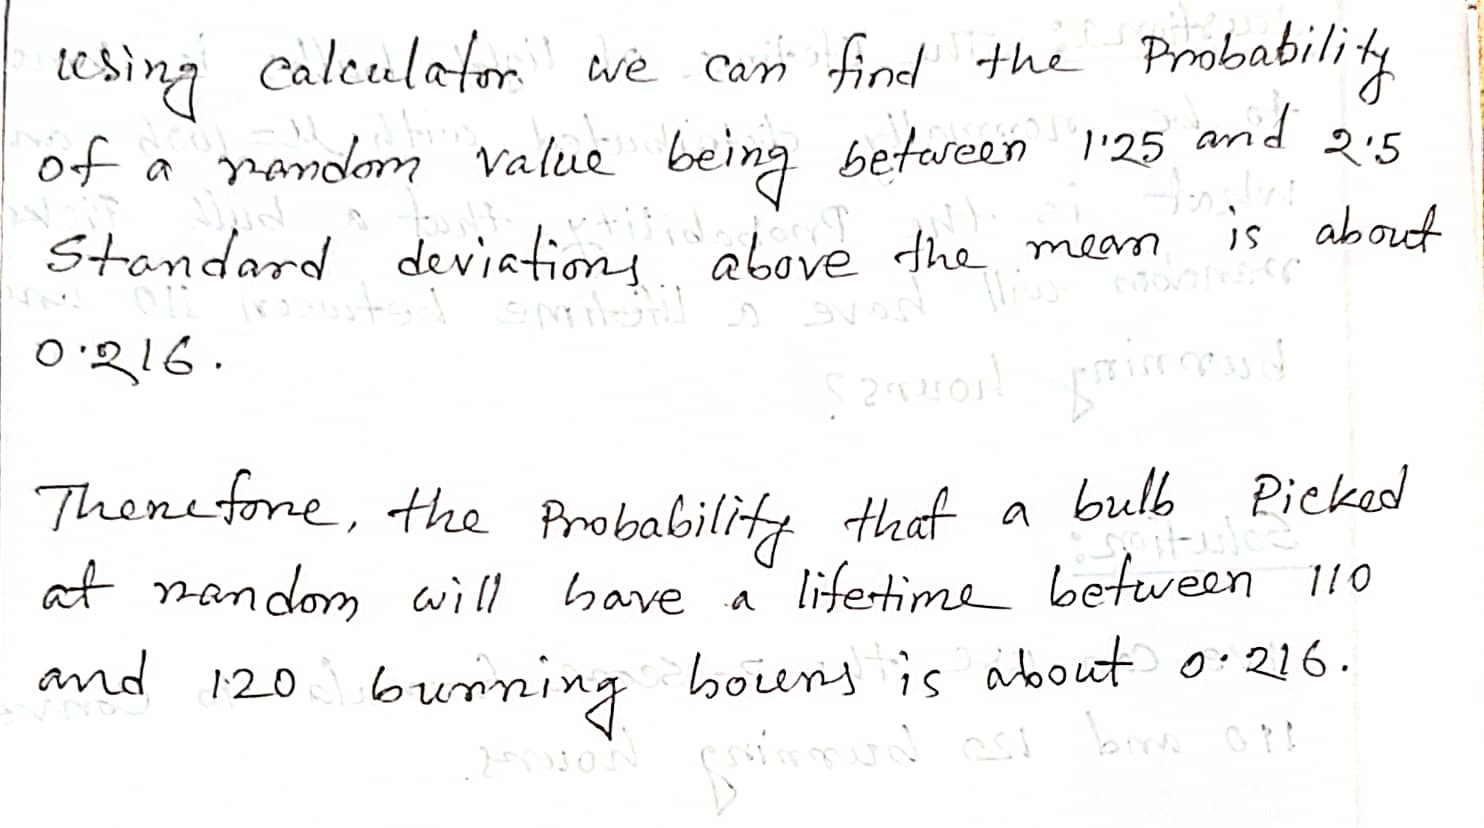 using calculator we can find the Probability
of a random value being between 1.25 and 2.5
Standard deviations above the mean is about
0.216.
Therefore, the Probability that a bulb Picked
at random will have a lifetime between 110
and 120 burning hours is about 0.216.